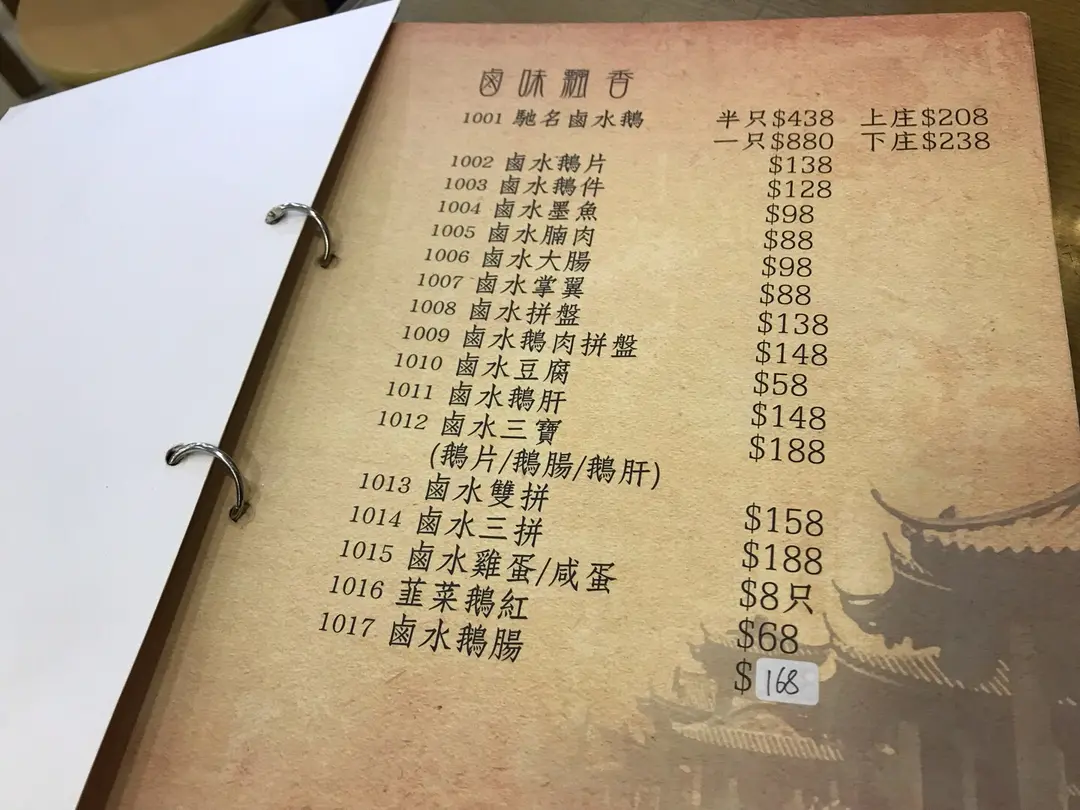 鹵味飄香
1001 馳名鹵水鵝 半只$438 上庄$208
一只$880 下庄$238
1002 鹵水鵝片 $138
1003 鹵水鵝件 $128
1004 鹵水墨魚 $98
1005 鹵水腩肉 $88
1006 鹵水大腸 $98
1007 鹵水掌翼 $88
1008 鹵水拼盤 $138
1009 鹵水鵝肉拼盤 $148
1010 鹵水豆腐 $58
1011 鹵水鵝肝 $148
1012 鹵水三寶 $188
(鵝片/鵝腸/鵝肝)
1013 鹵水雙拼 $158
1014 鹵水三拼 $188
1015 鹵水雞蛋/咸蛋 $8只
1016 韮菜鵝紅 $68
1017 鹵水鵝腸 $168